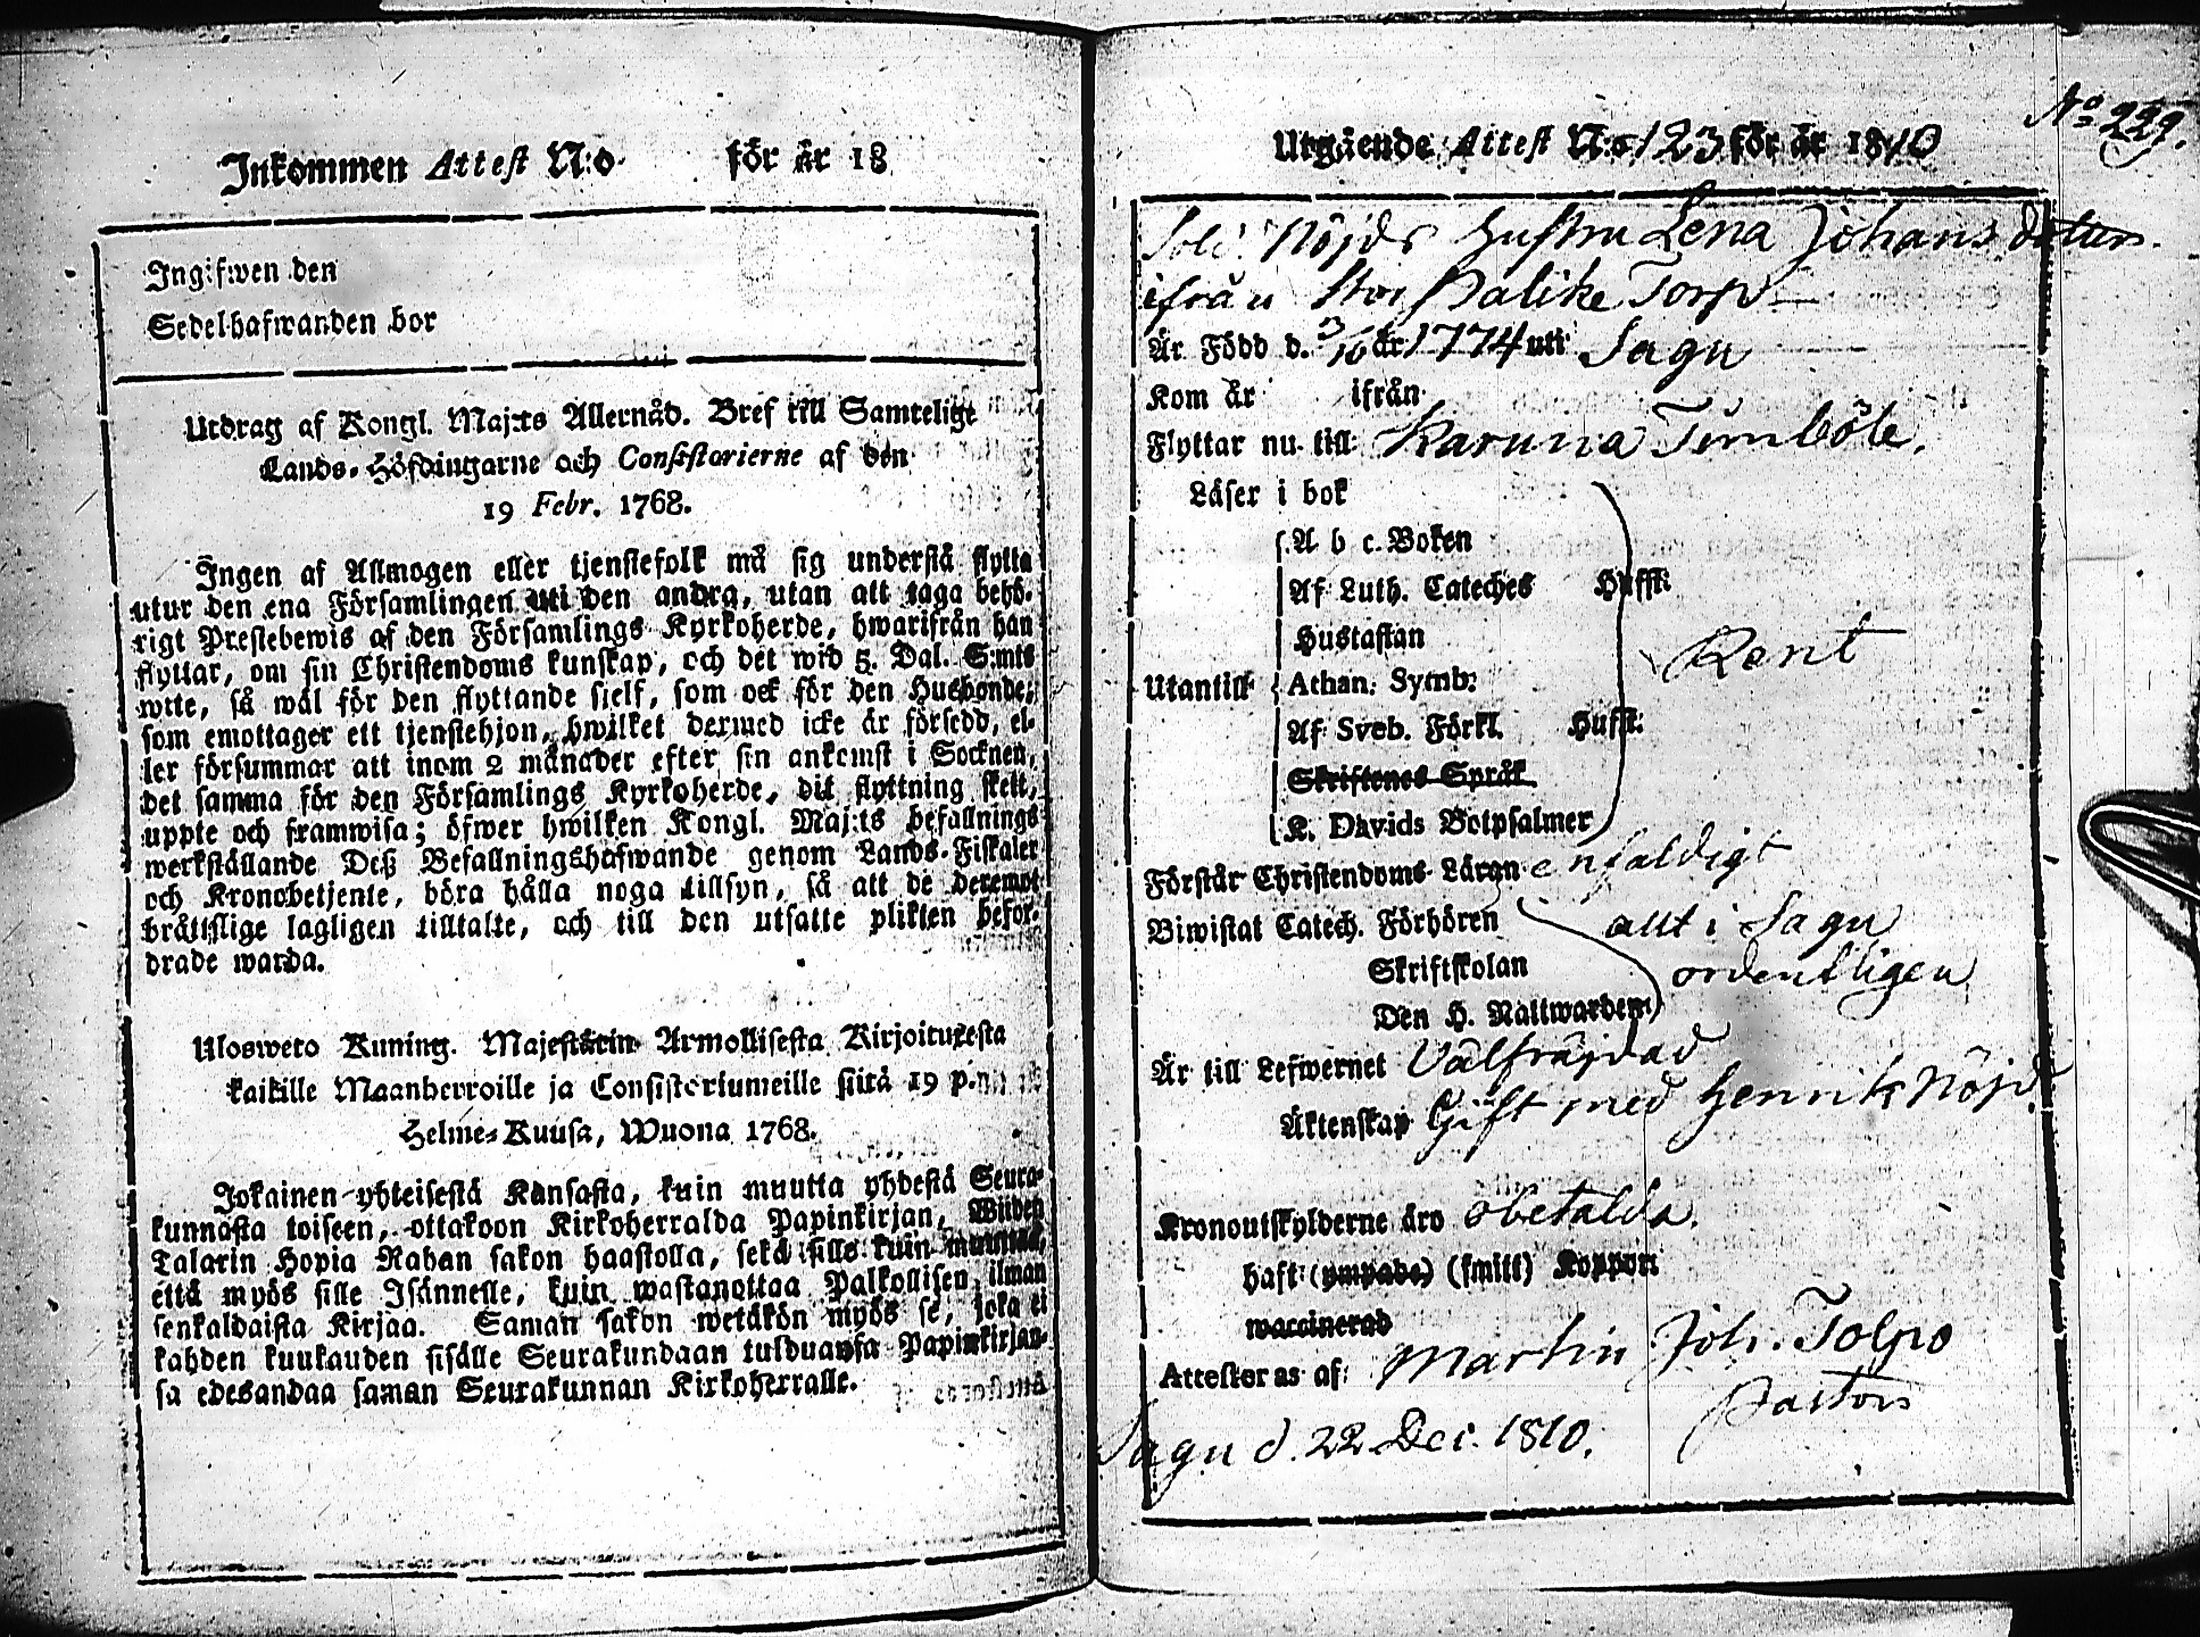 Inkommen Attest N:o för år 18
Ingifwen den
Sedelhafwanden bor
Utdrag af Kongl. Maj:ts Allernåd. Bref till Samtelige
Lands-Höfdingarne och Consistorierne af den
19 Febr. 1768.
Ingen af Allmogen eller tjenstefolk må sig understå flytta
utur den ena Församlingen uti den andra, utan att taga behö-
rigt Prestebewis af den Församlings Kyrkoherde, hwarifrån han
flyttar, om sin Christendoms kunskap, och det wid 5. Dal. S:mts
wite, så wäl för den flyttande sielf, som ock för den Husbonde,
som emottager ett tjenstehjon, hwilket dermed icke är försedd, el-
ler försummar att inom 2 månader efter sin ankomst i Socknen,
det samma för den Församlings Kyrkoherde, dit flyttning skett,
uppte och framwisa; öfwer hwilken Kongl. Maj:ts befallnings
werkställande Deß Befallningshafwande genom Lands-Fiskaler
och Kronobetjente, böra hålla noga tillsyn, så att de deremot
bråttslige lagligen tilltalte, och till den utsatte plikten befor-
drade warda.
Ulosweto Kuning. Majestätin Armollisesta Kirjoituxesta
kaikille Maanherroille ja Consistoriumeille siitä 19 p.
Helme-Kuusa, Wuona 1768.
Jokainen yhteisestä Kansasta, kuin muutta yhdestä Seura-
kunnasta toiseen, ottakoon Kirkoherralda Papinkirjan, Wiiden
Talarin Hopia Rahan sakon haastolla, sekä sille kuin muuttaa,
että myös sille Isännelle, kuin wastanottaa Palkollisen ilman
senkaldaista Kirjaa. Saman sakon wetäkön myös se, joka ei
kahden kuukauden sisälle Seurakundaan tulduansa Papinkirjan-
sa edesandaa saman Seurakunnan Kirkoherralle.
No 229.
Utgående Attest N:o 123 för år 1810
Sold. Nöjds hustru Lena Johans dotter
ifrån Stor Palike Torp
Är Född d. 3/10 år 1774 uti Sagu
Kom år ifrån
Flyttar nu till Karuna Timböle.
Läser i bok
A b c. Boken
Af Luth. Cateches Hufft:
Hustaflan
Rent
Utantill Athan. Symb:
Af Sveb. Förkl. Hufft:
Skriftenes Språk
K. Davids Botpsalmer
Förstår Christendoms Läran enfaldigt
Biwistat Catech. Förhören allt i Sagu
Skriftskolan ordentligen
Den H. Nattwarden
Är till Lefwernet Välfräjdad
Äktenskap Gift med Henrik Nöjd.
Kronoutskylderne äro obetalda.
haft (ympade) (smitt) Koppor:
waccinerad
Attesteras af: Martin Joh. Tolpo
Pastor
Sagu d. 22 Dec. 1810.